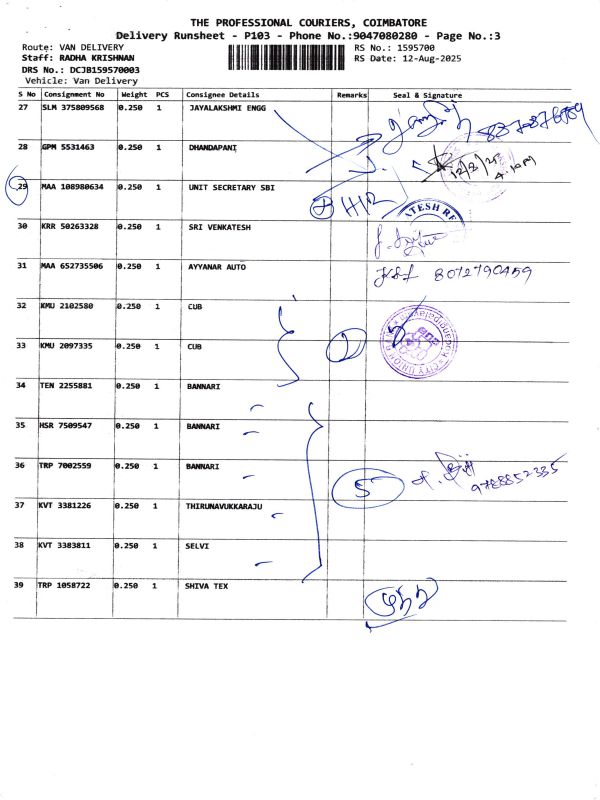 THE PROFESSIONAL COURIERS, COIMBATORE
Delivery Runsheet - P103 - Phone No.:9047080280 - Page No.:3
Route: VAN DELIVERY
RS No.: 1595700
Staff: RADHA KRISHNAN
RS Date: 12-Aug-2025
DRS No.: DCJB159570003
Vehicle: Van Delivery
S No Consignment No Weight PCS Consignee Details Remarks Seal & Signature
27 SLM 375809568 0.250 1 JAYALAKSHMI ENGG
28 GPM 5531463 0.250 1 DHANDAPANI
12/8/25
4.10PM
29 MAA 108980634 0.250 1 UNIT SECRETARY SBI
ATESH RE
30 KRR 50263328 0.250 1 SRI VENKATESH
31 MAA 652735506 0.250 1 AYYANAR AUTO 8072790459
32 KMU 2102580 0.250 1 CUB
33 KMU 2097335 0.250 1 CUB 2
CITY UNION
34 TEN 2255881 0.250 1 BANNARI
35 HSR 7509547 0.250 1 BANNARI
36 TRP 7002559 0.250 1 BANNARI 5 9788852335
37 KVT 3381226 0.250 1 THIRUNAVUKKARAJU
38 KVT 3383811 0.250 1 SELVI
39 TRP 1058722 0.250 1 SHIVA TEX